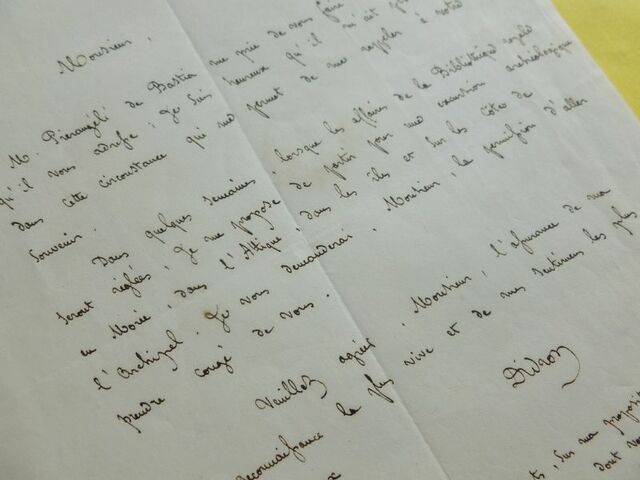 Monsieur,
M. Pierangeli de Bastia me prie de vous faire
qu'il vous adresse; je suis heureux qu'il
dans cette circonstance qui me permet de me rappeler à votre
souvenir.
Dans quelques semaines, lorsque les affaires de la Bibliothèque royale
seront réglées, je me propose de partir pour une excursion archéologique
en Morée, dans l'Attique, dans les îles et sur les côtes de
l'Archipel. Je vous demanderai, Monsieur, la permission d'aller
prendre congé de vous.
Veuillez agréer, Monsieur, l'assurance de ma
reconnaissance la plus vive et de mes sentimens les plus
Didron
sur ma proposit
dont vo